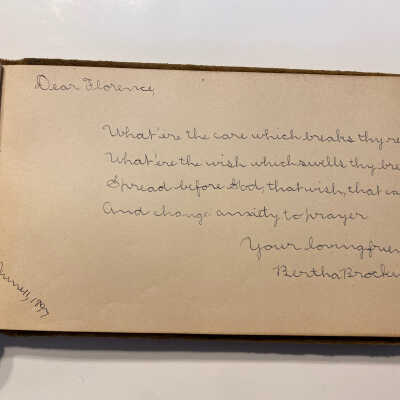 Dear Florence,
What'ere the care which breaks thy re
What'ere the wish which swells thy bre
Spread before God, that wish, that ca
And change anxiety to prayer
Your loving frien
Bertha Brocku
June 11, 1897